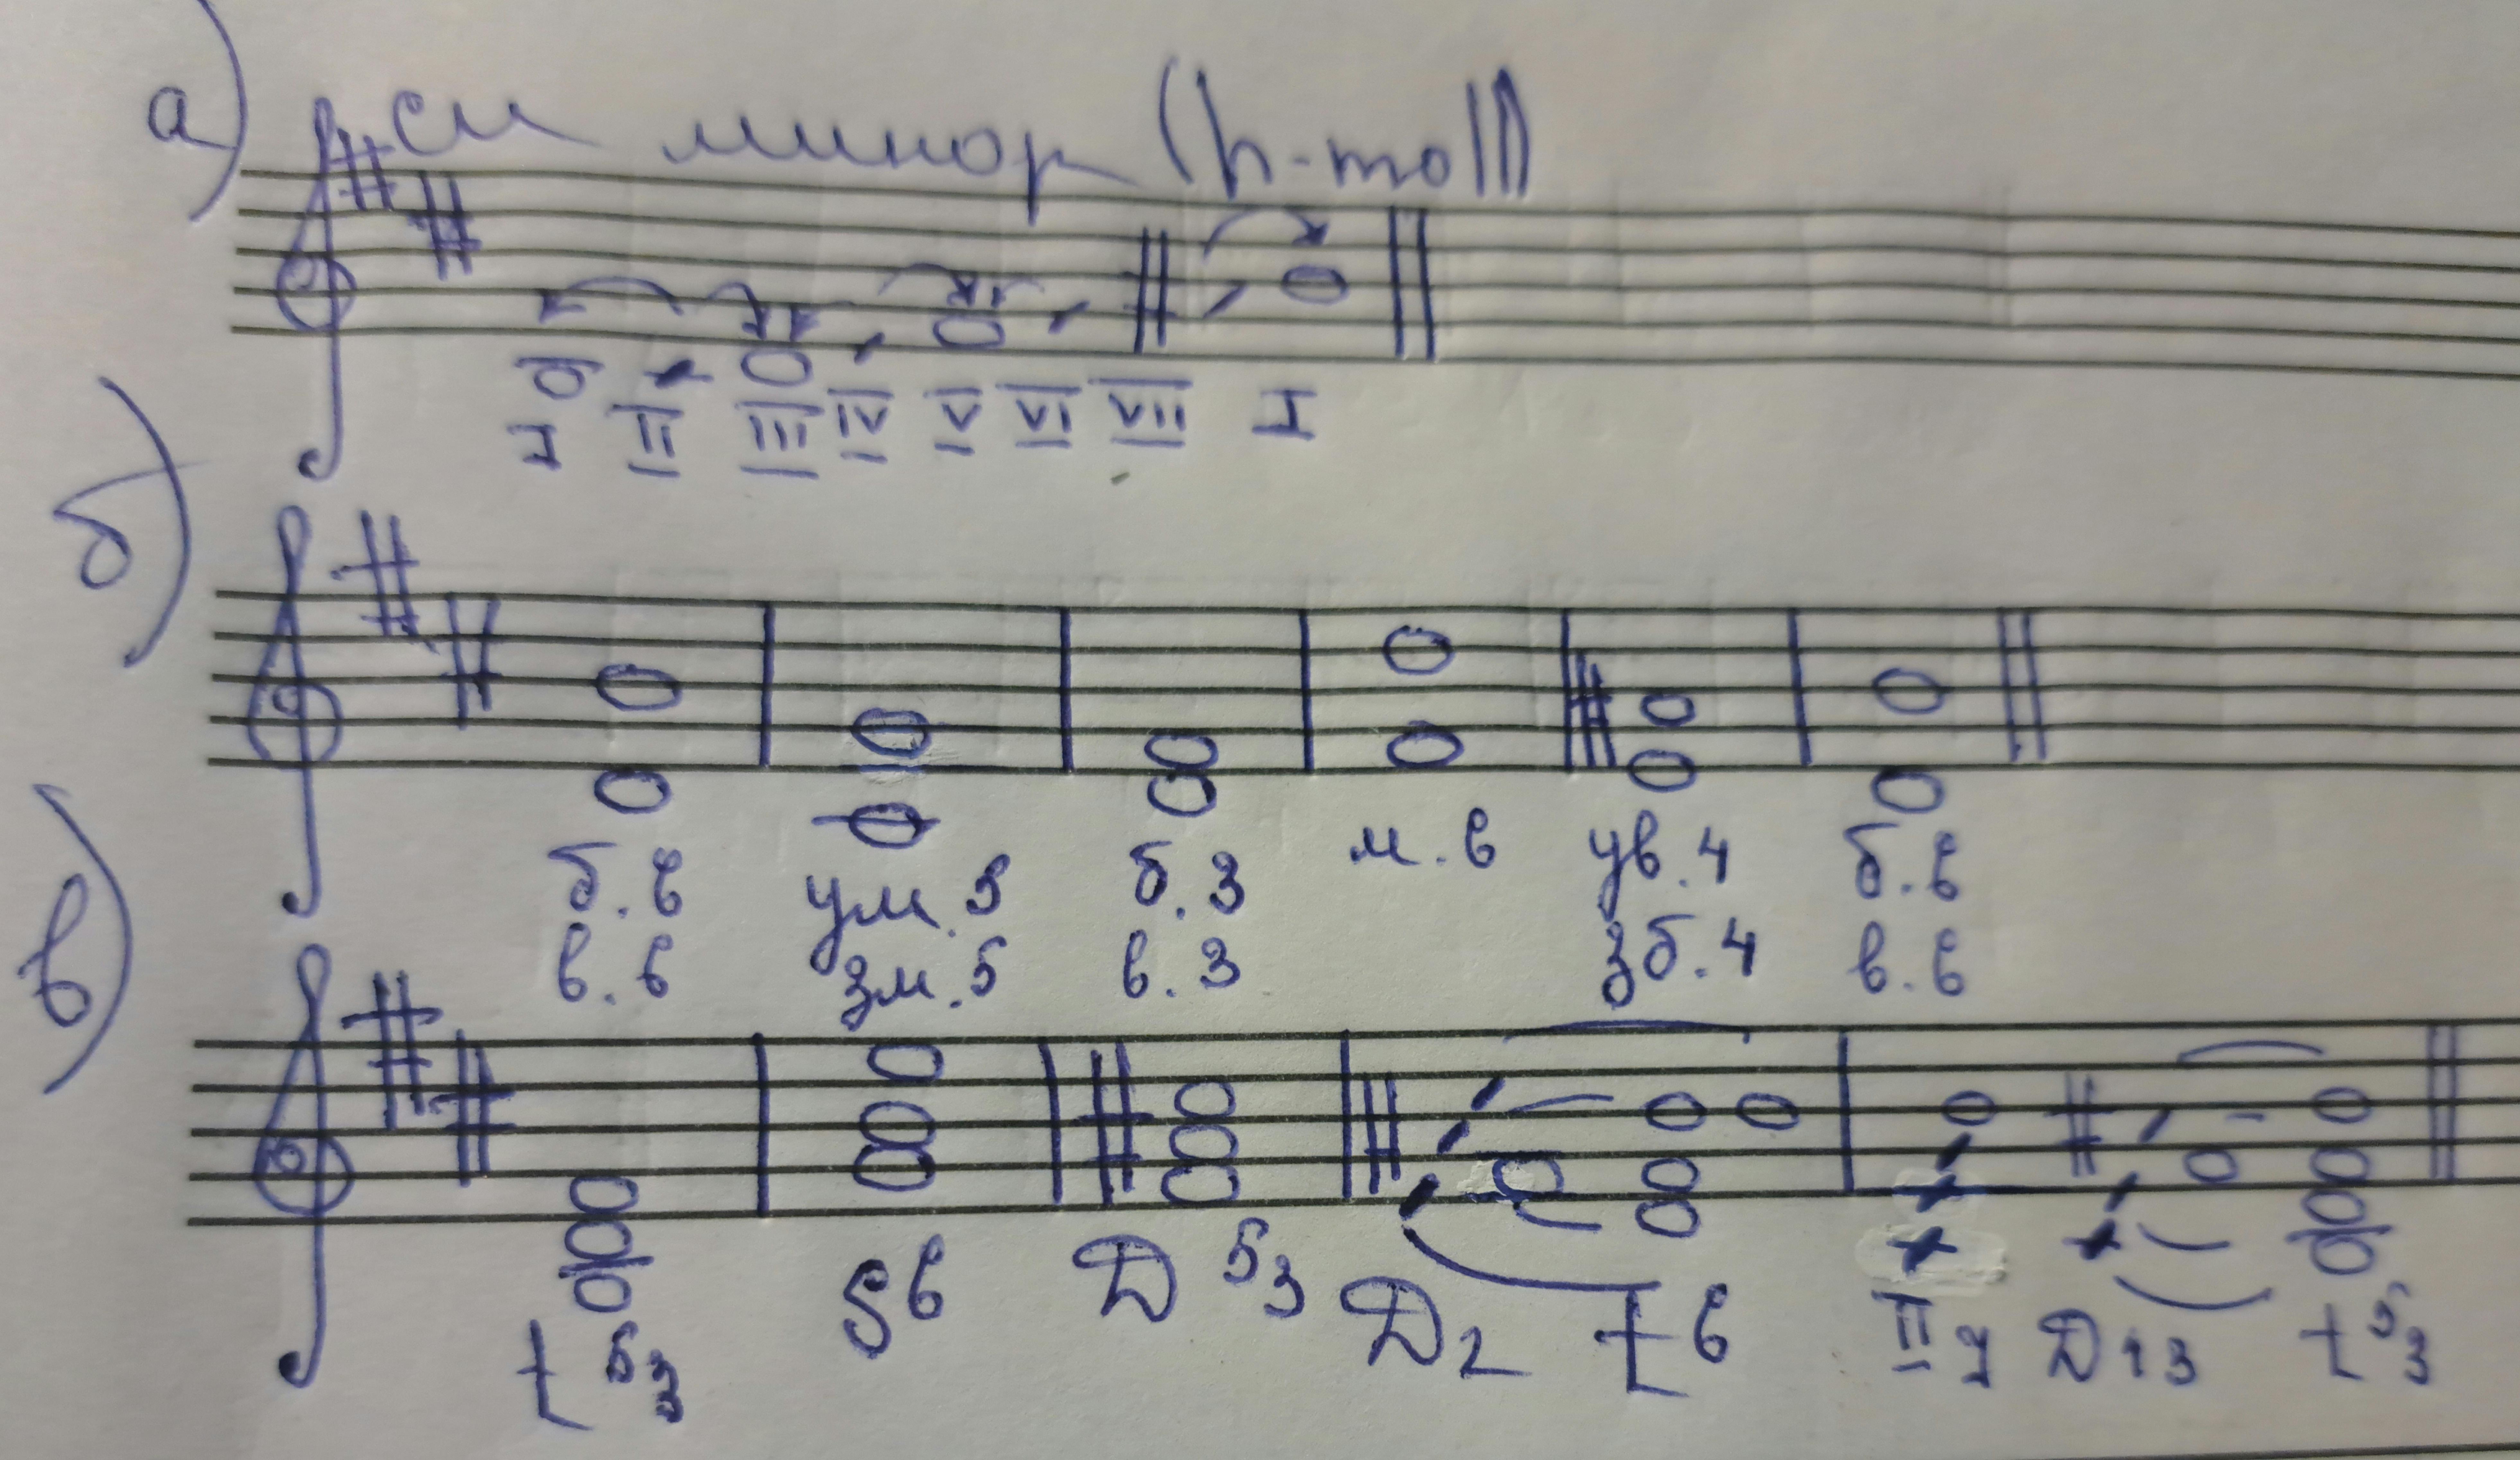 а) си минор (h-moll)
I II III IV V VI VII I
б)
б.6 ум.5 б.3 м.6 ув.4 б.6
в.6 зм.5 в.3 зб.4 в.6
в)
t 5 3 S6 D 5 3 D2 t6 II7 D43 t 5 3